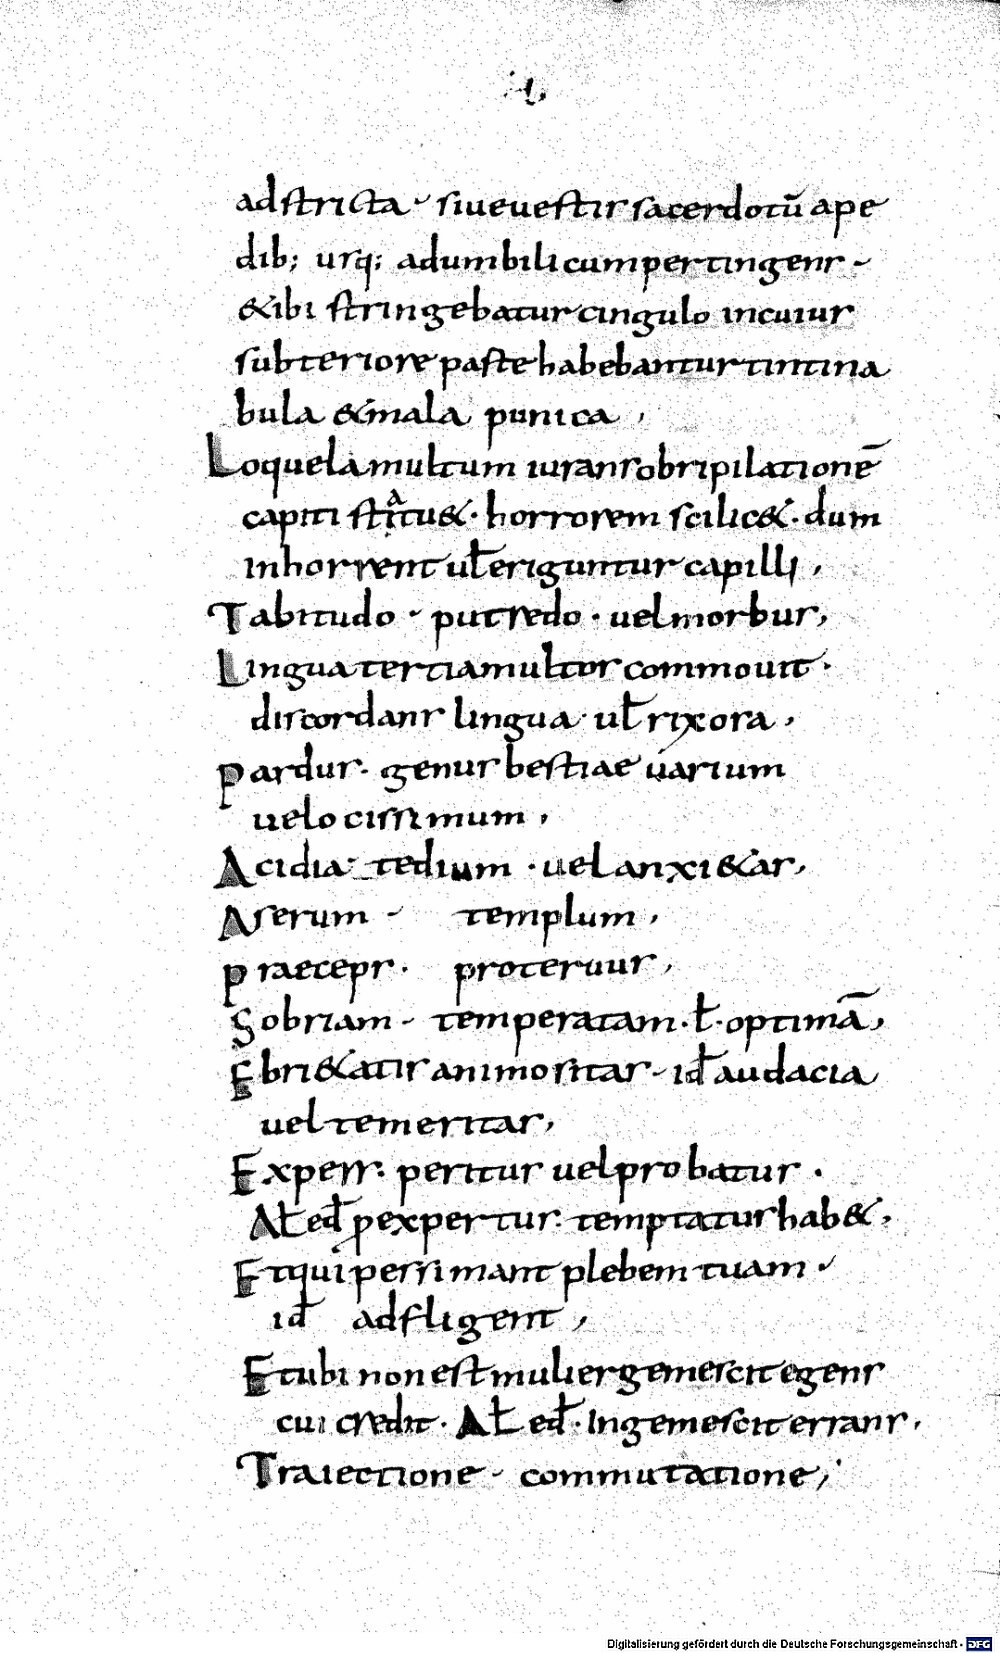 adstricta siue uestis sacerdotū a pe
dib; usq; ad umbilicum pertingens
& ibi stringebatur cingulo in cuius
subteriore parte habebantur tintina
bula & mala punica,
Loquela multum iurans obripilationē
capiti statu&. horrorem scilic&. dum
inhorrent uł eriguntur capilli,
Tabitudo putredo. uel morbus,
Lingua tertia multos commouit.
discordans lingua uł rixosa,
Pardus. genus bestiae uarium
uelocissimum,
Acidia tedium. uel anxi&as,
Aserum templum,
Praeceps. proteruus,
Sobriam temperatam. ł. optimā,
Ebri&atis animositas id audacia
uel temeritas,
Expers. peritus uel probatus.
Ał ed p expertus. temptatus hab&,
Et qui pessimant plebem tuam
id adfligent,
Et ubi non est mulier gemescit egens
cui credit. Ał ed. Ingemescit errans,
Traiectione commutatione,
Digitalisierung gefördert durch die Deutsche Forschungsgemeinschaft - DFG